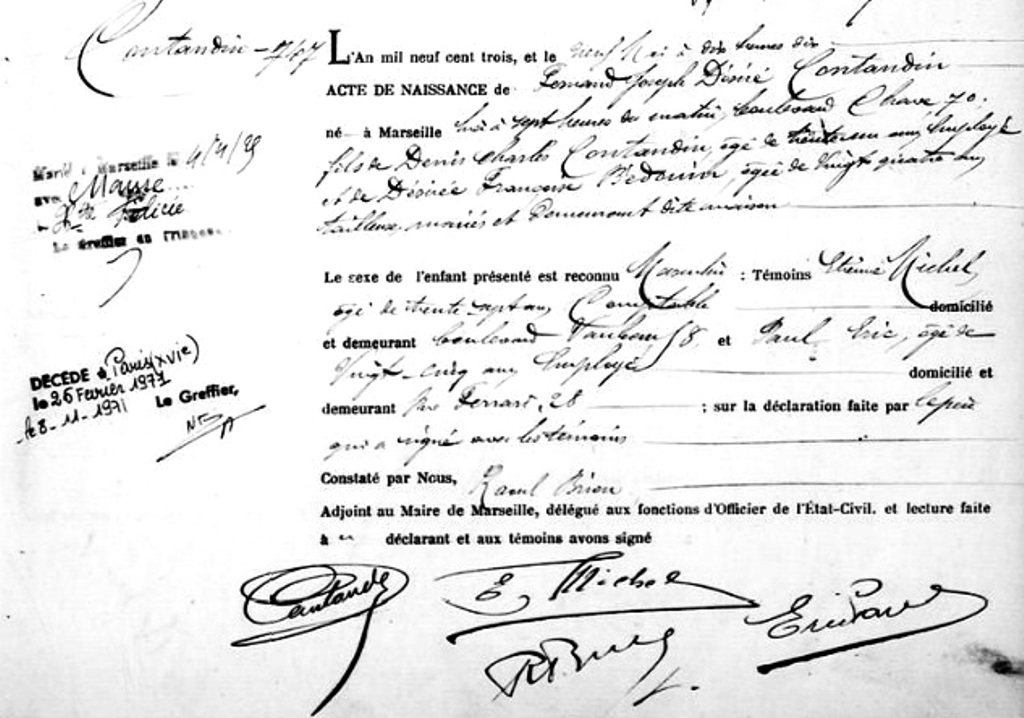 Contandin - 747
L'An mil neuf cent trois, et le neuf Mai à dix heures dix
ACTE DE NAISSANCE de Fernand Joseph Désiré Contandin
né à Marseille hier à sept heures du matin, boulevard Chave 70.
fils de Denis Charles Contandin, âgé de trente un ans, Employé
et de Désirée Françoise Bédouin, âgée de vingt quatre ans
tailleuse, mariés et demeurant dite maison
Marié à Marseille le 4/4/25
avec Manse
Hte Félicie
Le Greffier
Le sexe de l'enfant présenté est reconnu Masculin : Témoins Etienne Michel,
âgé de trente sept ans Comptable domicilié
et demeurant boulevard Vauban 58 et Paul Eric, âgé de
Vingt-cinq ans Employé domicilié et
demeurant Rue Ferrari, 28 ; sur la déclaration faite par le père
qui a signé avec les témoins
DÉCÉDÉ à Paris (XVIe)
le 26 Février 1971
le 8-11-1971 Le Greffier,
Constaté par Nous, Raoul Brion
Adjoint au Maire de Marseille, délégué aux fonctions d'Officier de l'État-Civil. et lecture faite
à déclarant et aux témoins avons signé
Contandin
E. Michel
Eric Paul